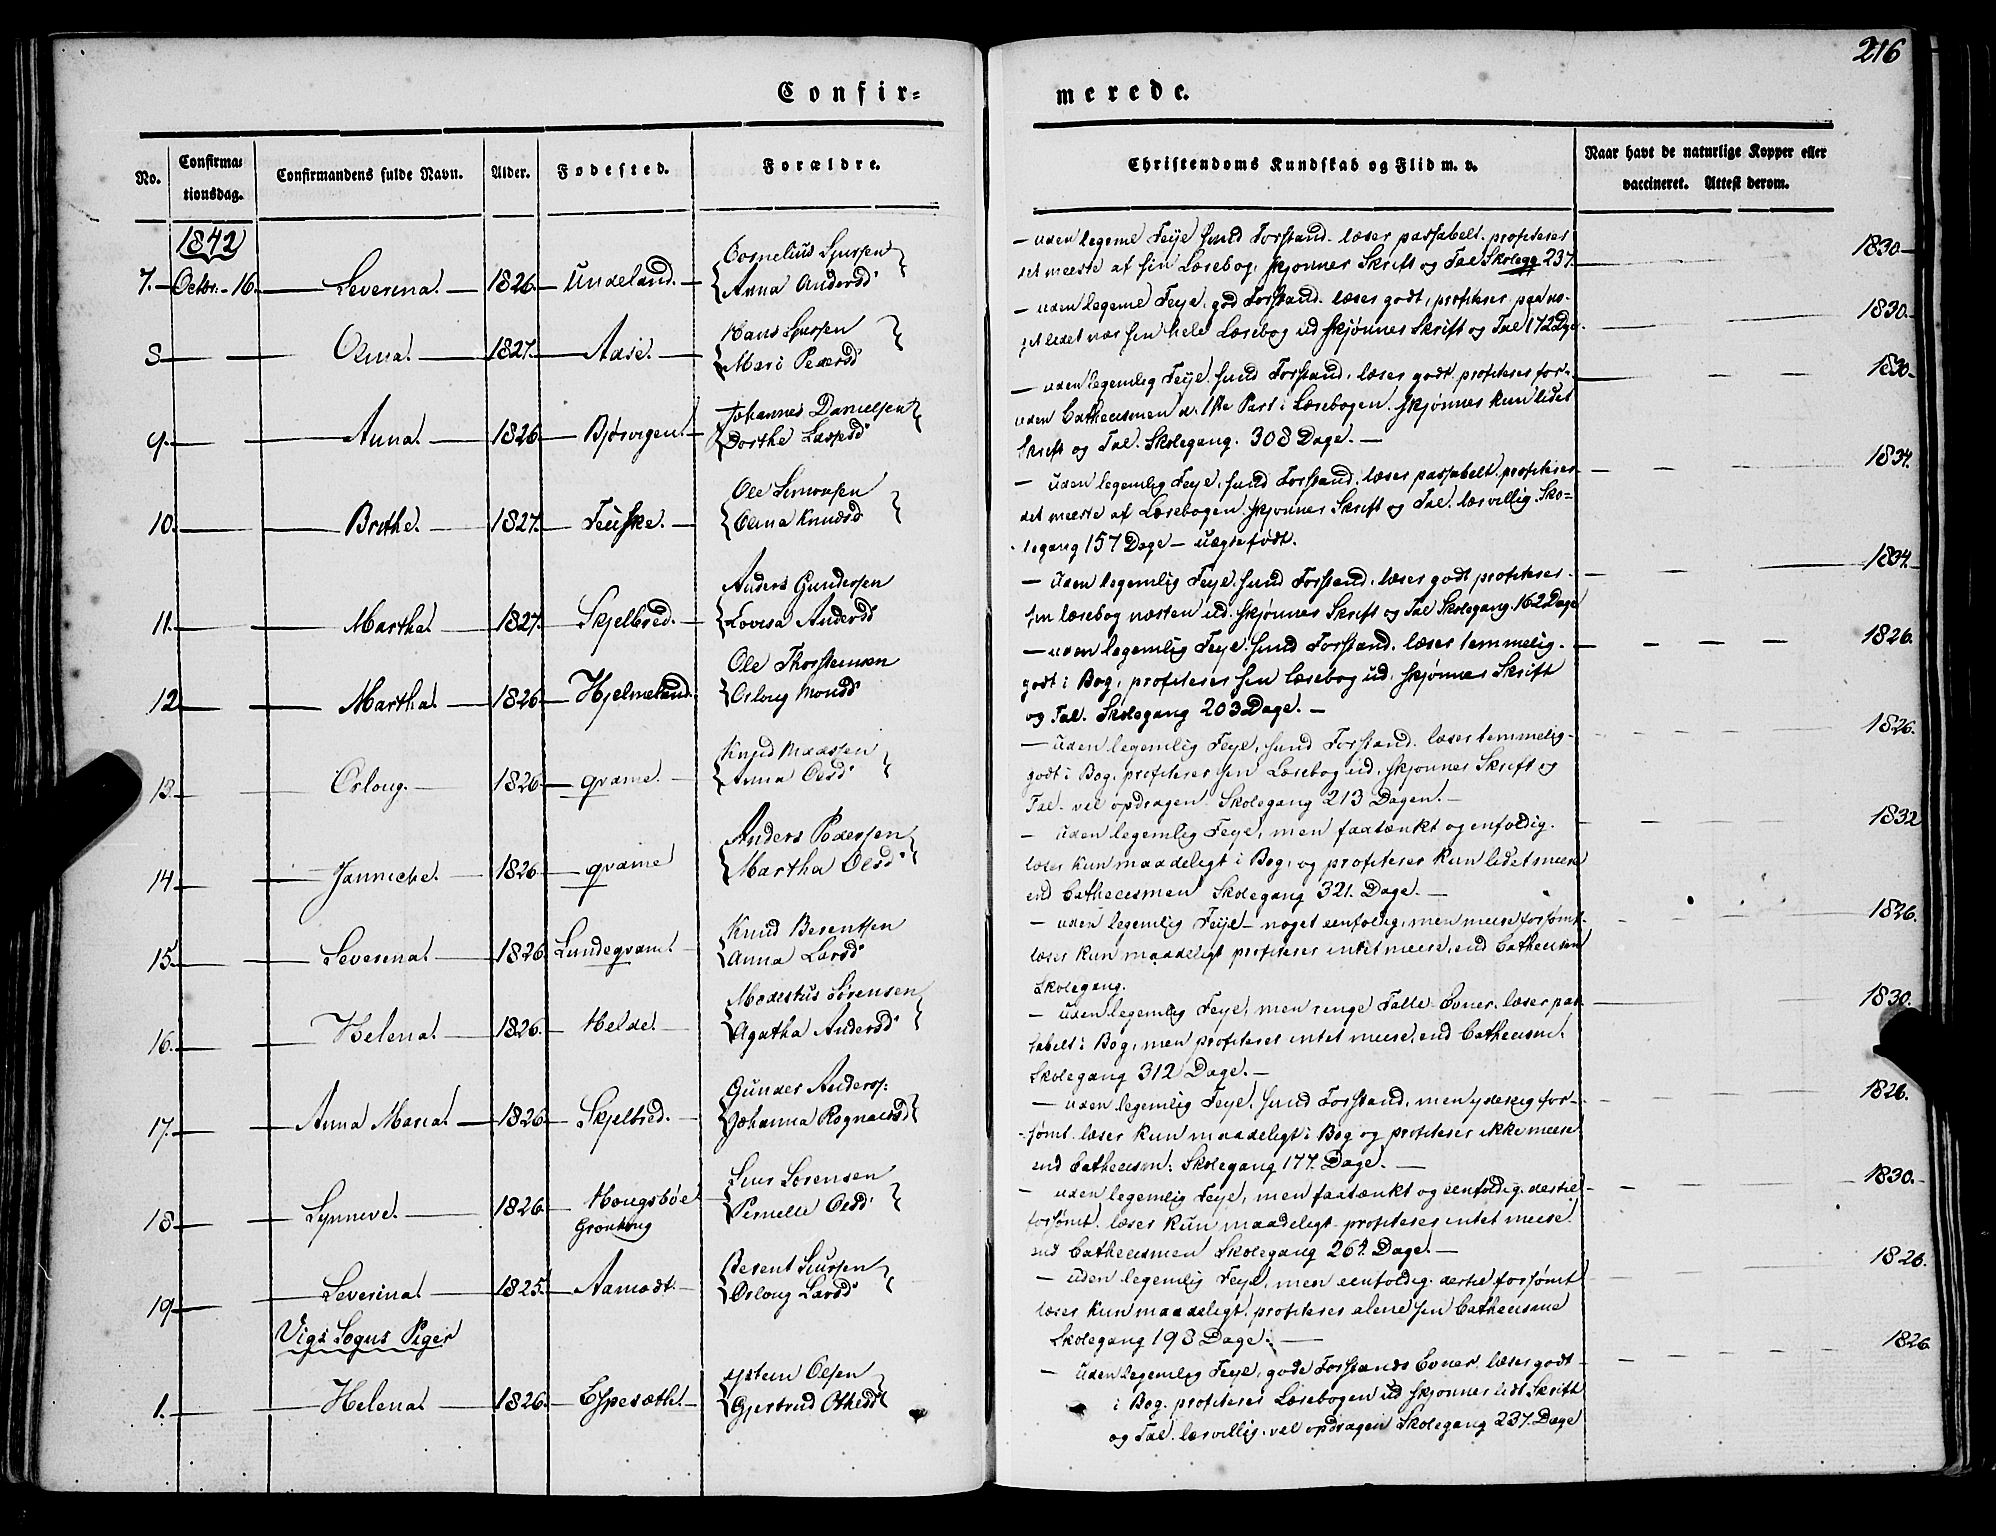 216
Confir-
merede.
No.
Confirma-
tionsdag.
Confirmandens fulde Navn.
Alder.
Fødested.
Forældre.
Christendoms Kundskab og Flid m. v.
Naar havt de naturlige Kopper eller
vaccineret. Attest derom.
1842
7. Octbr. 16. Severina. 1826. Undeland.
Cornelius
Anna Andersd
— uden legeme Feje sund Forstand. læser passabelt. profiterer
det meeste af sin Læsebog, skjønner Skrift og Tal Skolegg 237.
1830
8 Olina. 1827. Aase.
Hans
Mari Pedersd
— uden legeme Feje, god Forstand. læser godt, profiterer paa no-
get ledet nær sin hele Læsebog ud skjønner Skrift og Tal 172 Dge
1830.
9. Anna. 1826 Bjørvigen.
Johannes Danielsen
Dorthe Larsd
— uden legemlig Feje. sund Forstand, læser godt profiterer for-
uden Cathecismen d. 1ste Part i Læsebogen. skjønner kun lidet
Skrift og Tal. Skolegang. 308 Dage. —
1830
10. Brithe. 1827. Feuske.
Ole Simonsen
Olina Knudsd
— uden legemlig Feje, sund Forstand, læser passabelt. profiterer
det meeste af Læsebogen. skjønner Skrift og Tal. lærvillig. Sko-
legang 157 Dage — uægtefødt.
1834.
11. Martha. 1827. Skjelbred.
Anders Gundersen
Lovisa Andersd
— uden legemlig Feje. sund Forstand, læser godt profiterer
sin læsebog næsten ud. skjønner Skrift og Tal Skolegang 162 Dage
1834.
12 Martha. 1826 Hjelmeland.
Ole Thorstensen
Osloug Monsd
— uden legemlig Feje. sund Forstand. læser temmelig.
godt i Bog, profiterer sin læsebog ud, skjønner Skrift
og Tal. Skolegang 203 Dage. —
1826.
13. Osloug. 1826 qvame.
Knud Madssen
Anna Olsd
— uden legemlig Feje, sund Forstand. læser temmelig-
godt i Bog, profiterer sin Læsebog ud, skjønner Skrift og
Tal. vel opdragen. Skolegang 213 Dagen. —
1826.
14. Jannicke. 1826. qvame
Anders Pedersen
Martha Olsd
— uden legemlig Feje, men faatænkt og enfoldig.
læser kun maadeligt i Bog, og profiterer kun lidet meere
end Cathecismen Skolegang 321. Dage. —
1832
15. Severina. 1826 Lundeqvam.
Knud Berentsen
Anna Larsd
— uden legemlig Feje — noget eenfoldig, men meere forsømt.
læser kun maadeligt profiterer intet meere, end Cathecism
Skolegang.
1826.
16. Helena. 1826. Helde.
Modestus Sørensen
Agatha Andersd
— uden legemlig Feje, men ringe Fatte Evner. læser pas-
sabelt i Bog, men profiterer intet meere, end Cathecism.
Skolegang 312 Dage. —
1830.
17. Anna Maria. 1826 Skjelbred.
Gunder Anderss:
Johanna Rognaldsd
— uden legemlig Feje, sund Forstand, men yderlig for-
sømt. læser kun maadeligt i Bog og profiterer ikke meere
end Cathecism: Skolegang 177. Dage. —
1826.
18 Synneve. 1826. Hougsbøe
Sørensen
Pernelle Olsd
— uden legemlig Feje, men faatænkt og eenfoldig. dertil
forsømt. læser kun maadeligt profiterer intet meere
end Cathecismen Skolegang 264. Dage. —
1830.
19 Severina. 1825. Aamodt.
Berent Siursen
Osloug Larsd
— uden legemlig Feje, men eenfoldig. dertil forsømt
læser kun maadeligt. profiterer alene sin Cathecisme
Skolegang 193 Dage. —
1826.
Vigs Sogns Piger
1. Helena. 1826. Espesæth.
Olsen
Gjertrud
— uden legemlig Feje, gode Forstands Evner. læser godt
i Bog. profiterer Læsebogen ud skjønner lidt Skrift
og Tal. lærvillig. vel opdragen Skolegang 237. Dage
1826